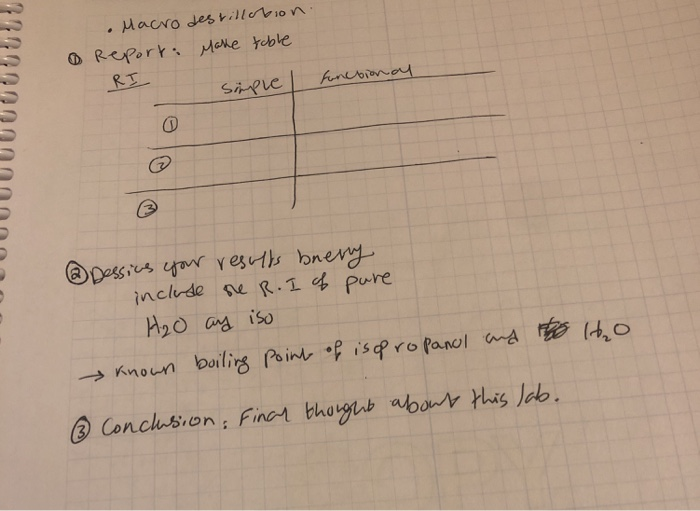 • Macro destillation.
① Report: Make table
RI
Simple | Functional
①
②
③
② Dessics your results briefly
include the R.I of pure
H₂O and iso
→ Known boiling point of isopropanol and H₂O
③ Conclusion: Final thought about this lab.